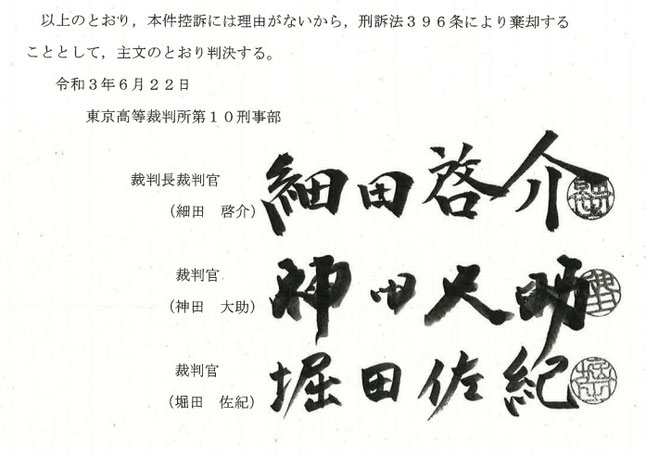 以上のとおり，本件控訴には理由がないから，刑訴法３９６条により棄却する
こととして，主文のとおり判決する。
令和３年６月２２日
東京高等裁判所第１０刑事部
裁判長裁判官
細田啓介
（細田　啓介）
裁判官
神田大助
（神田　大助）
裁判官
堀田佐紀
（堀田　佐紀）